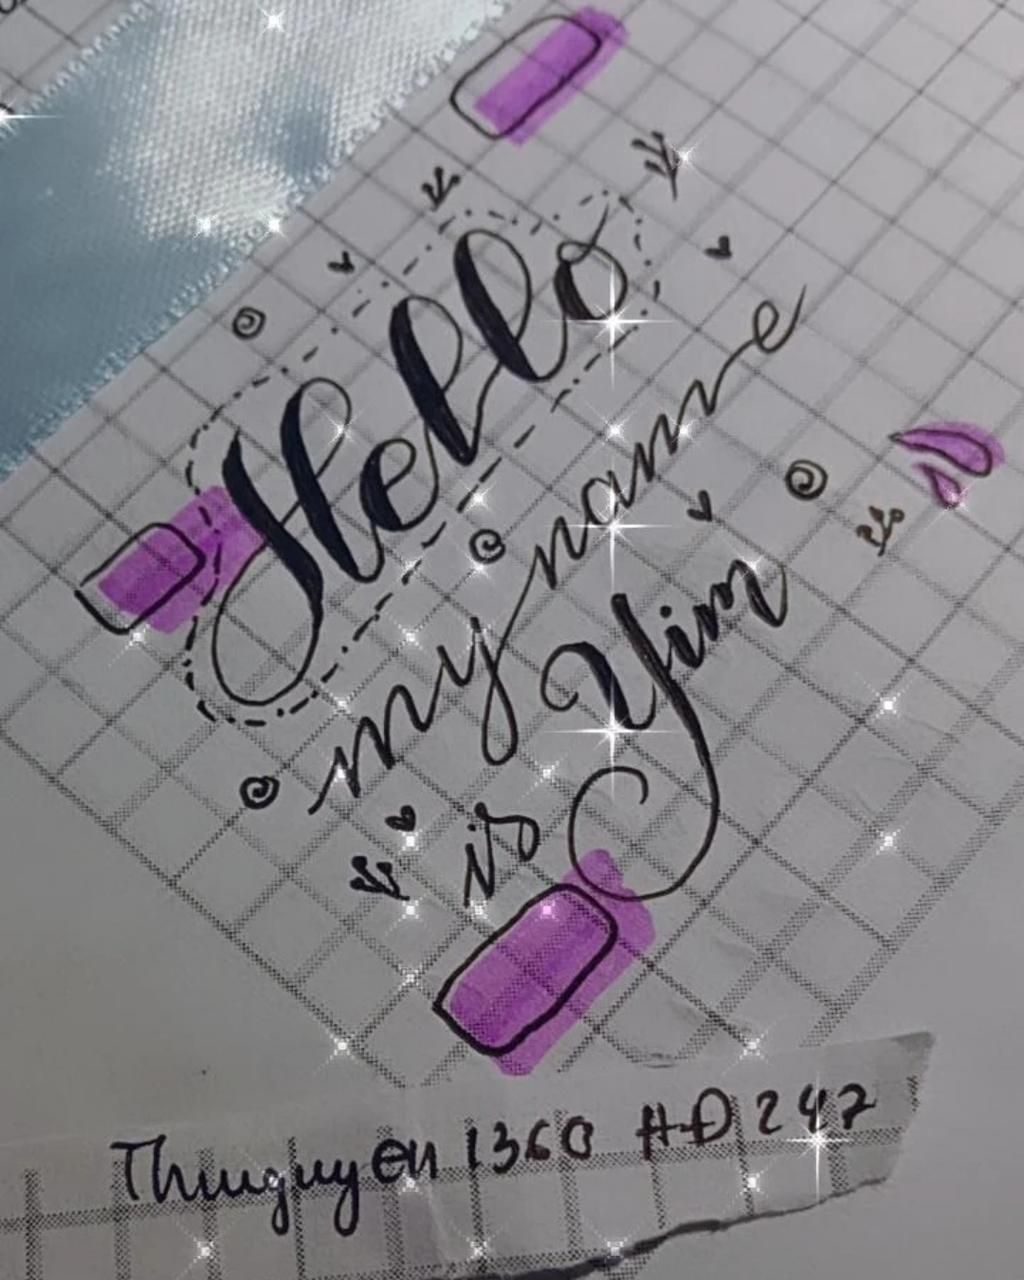 Hello
my name
is Yim
Thuuguyen 1360 HĐ 247